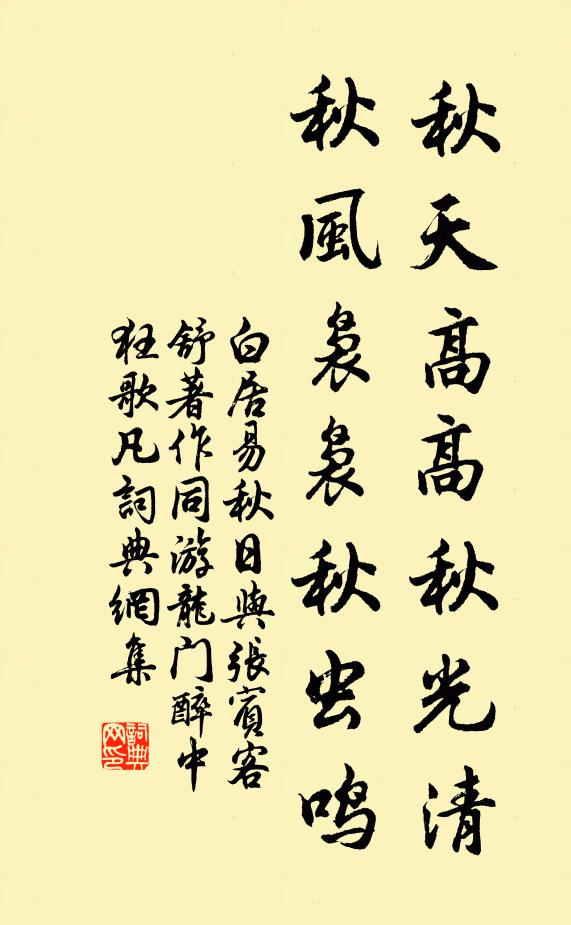 秋天高高秋光清
秋風裊裊秋虫鸣
白居易秋日與張賓客
舒著作同游龍门醉中
狂歌凡詞典網集
詞典
网印